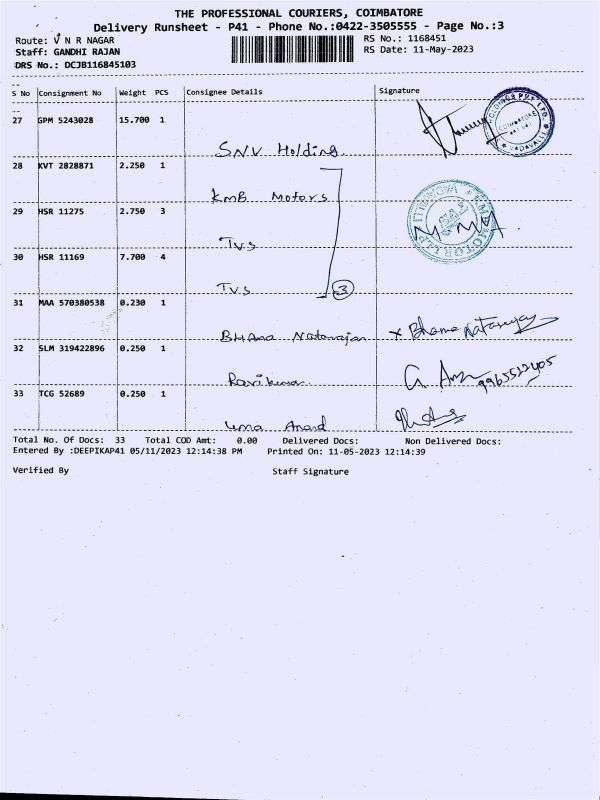 THE PROFESSIONAL COURIERS, COIMBATORE
Delivery Runsheet - P41 - Phone No.:0422-3505555 - Page No.:3
Route: V N R NAGAR
RS No.: 1168451
Staff: GANDHI RAJAN
RS Date: 11-May-2023
DRS No.: DCJB116845103
S No Consignment No Weight PCS Consignee Details Signature
27 GPM 5243028 15.700 1
SNV Holding.
28 KVT 2828871 2.250 1
KMB Motors
29 HSR 11275 2.750 3
TVS
30 HSR 11169 7.700 4
TVS 3
31 MAA 570380538 0.230 1
BHAna Natarajan x Bhama Natarajan
32 SLM 319422896 0.250 1
Ravikumar 9965522405
33 TCG 52689 0.250 1
Uma Anand
Total No. Of Docs: 33 Total COD Amt: 0.00 Delivered Docs: Non Delivered Docs:
Entered By :DEEPIKAP41 05/11/2023 12:14:38 PM Printed On: 11-05-2023 12:14:39
Verified By Staff Signature